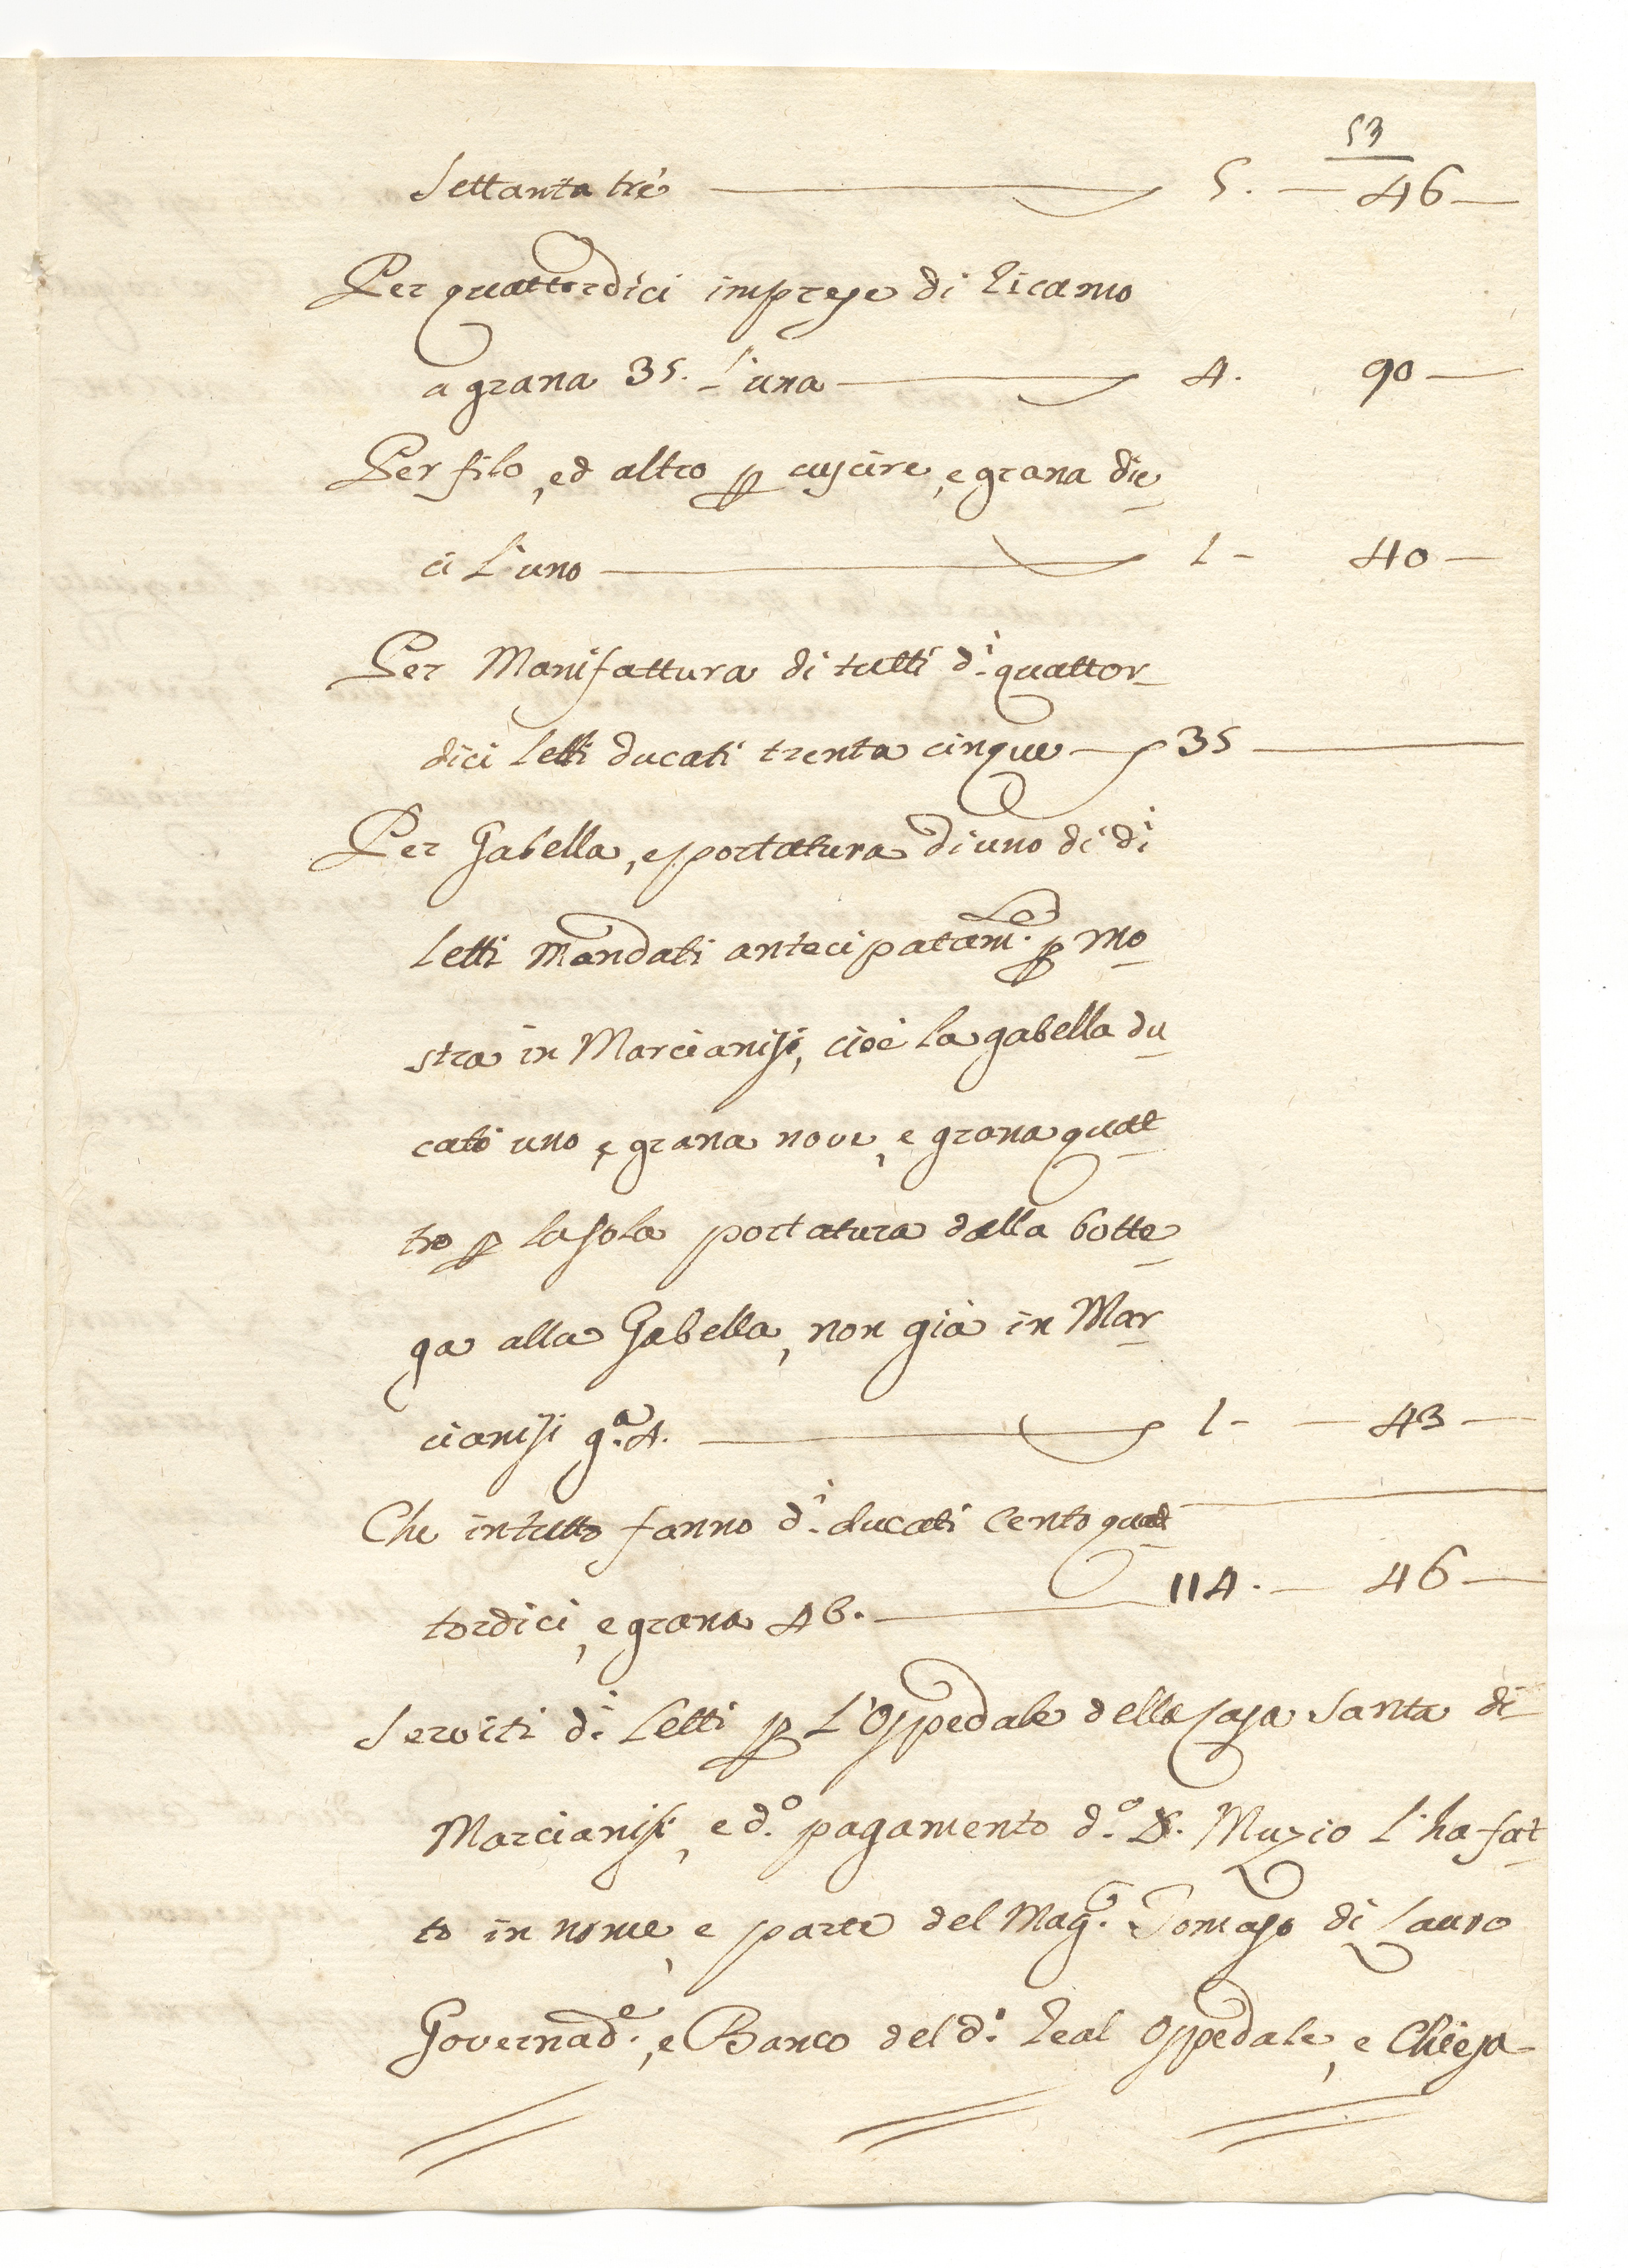 53
Settanta tré 5. 46
Per quattordici imprese di ricamo
a grana 35. l'una 4. 90
Per filo, ed altro p cuscire, e grana die
ci l'uno 1 - 40
Per Manifattura di tutti d.i quattor
dici letti ducati trenta cinque 35
Per Gabella, e portatura di uno di d.i
letti mandati antecipatam.e p mo
stra in Marcianisi, cioè la gabella du
cato uno e grana nove, e grana quat
tro p la sola portatura dalla botte
ga alla Gabella, non già in Mar
cianisi g.a 4. 1 - 43
Che in tutto fanno d.i ducati cento quat
tordici, e grana 46. 114. 46
Serviti d.i letti p l'Ospedale della casa Santa di
Marcianisi, e d.o pagamento d.o D. Muzio l'ha fat
to in nome, e parte del Mag.o Tomaso di Lauro
Governad.e, e Banco del d.o Real Ospedale, e Chiesa